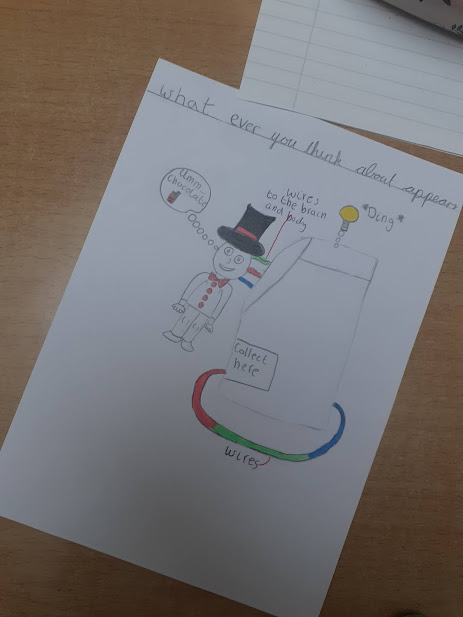 what ever you think about appears
Umm...
Chocolate
wires
to the brain
and body
*Ding*
Collect
here
wires